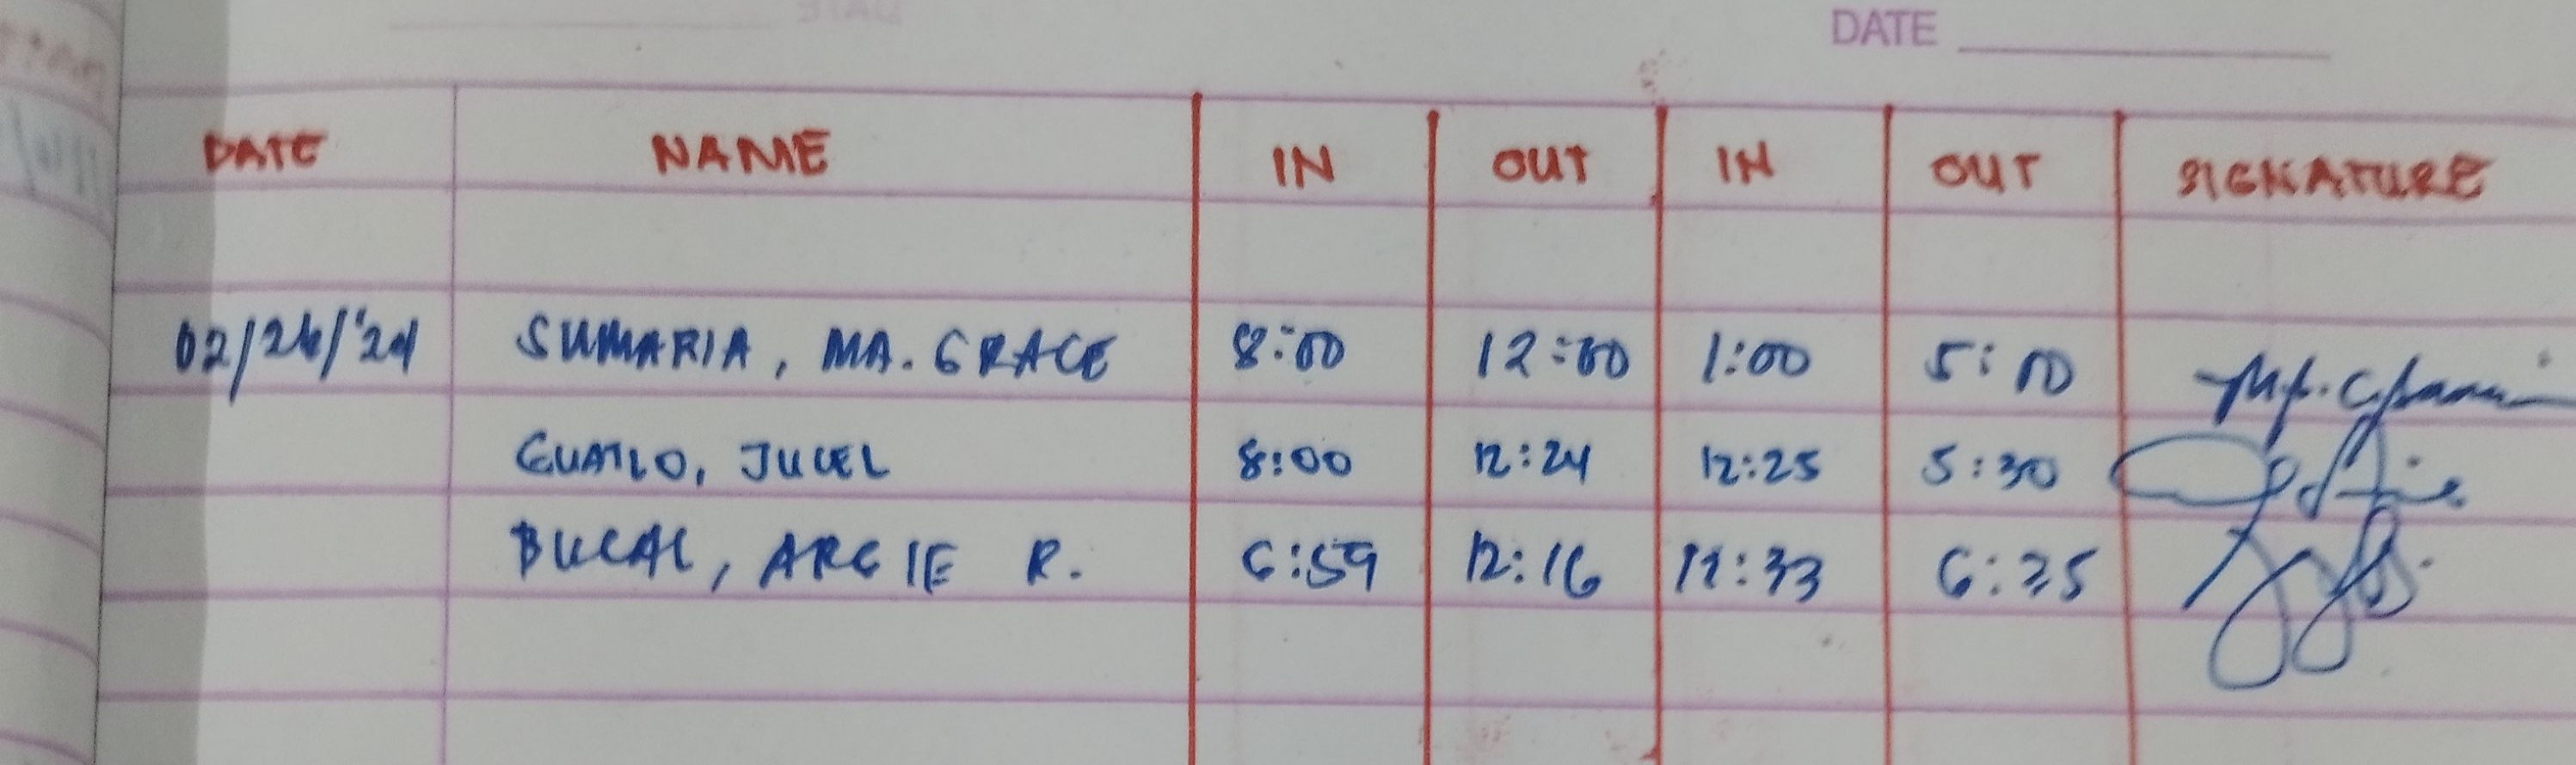 DATE
DATE NAME IN OUT IN OUT SIGNATURE
02/26/'24 SUMARIA, MA. GRACE 8:00 12:00 1:00 5:00
GUATLO, JUCEL 8:00 12:24 12:25 5:30
BUCAL, ARGIE R. 6:59 12:16 12:33 6:35